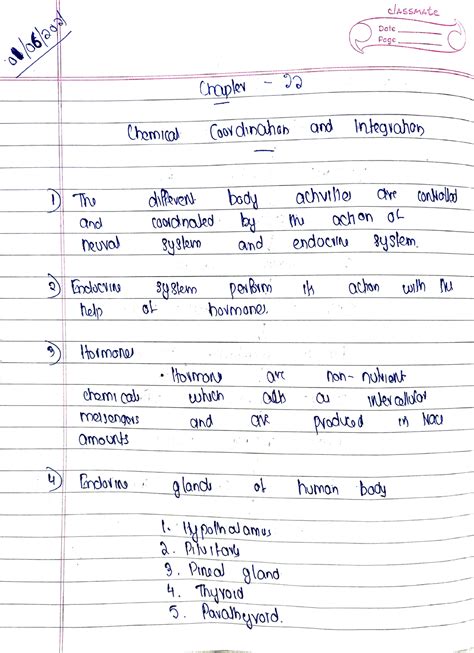 classmate
Date
Page
01/06/2021
Chapter - 22
Chemical Coordination and Integration
1) The different body activities are controlled
and coordinated by the action of
neural system and endocrine system.
2) Endocrine system perform its action with the
help of hormones.
3) Hormones
• Hormone are non-nutrient
chemicals which acts as intercellular
messengers and are produced in trace
amounts
4) Endocrine glands of human body
1. Hypothalamus
2. Pituitary
3. Pineal gland
4. Thyroid
5. Parathyroid.